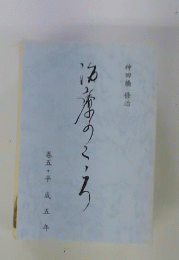 神田橋 條治
治療のこころ
巻五・平成五年